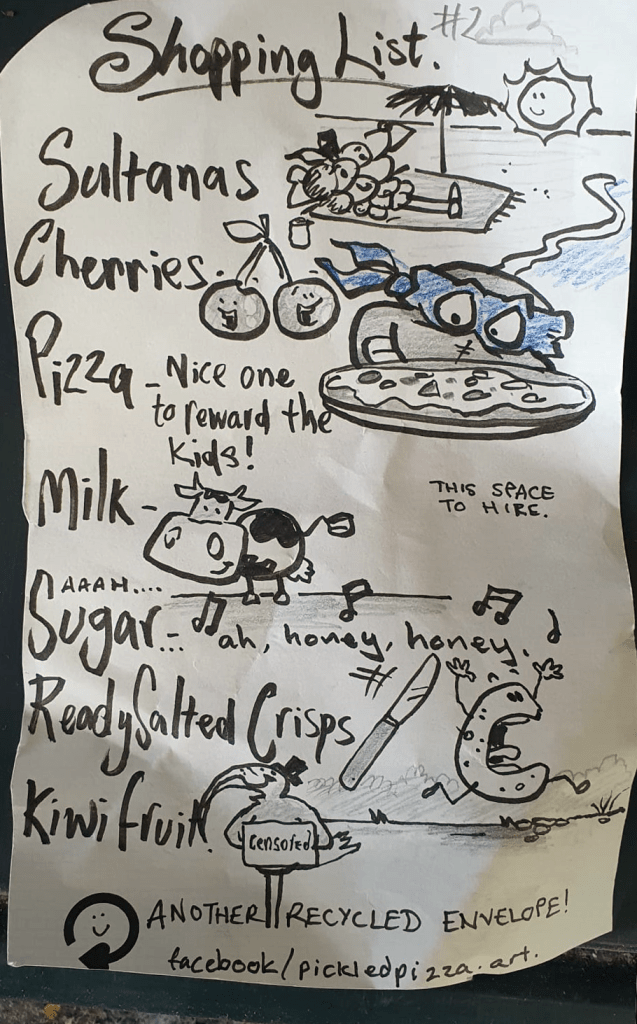 Shopping List. #2
Sultanas
Cherries.
Pizza - Nice one
to reward the
kids!
Milk -
THIS SPACE
TO HIRE.
AAAH....
Sugar... ah, honey, honey.
Ready Salted Crisps
Kiwi fruit.
Censored
ANOTHER RECYCLED ENVELOPE!
facebook/pickledpizza.art.